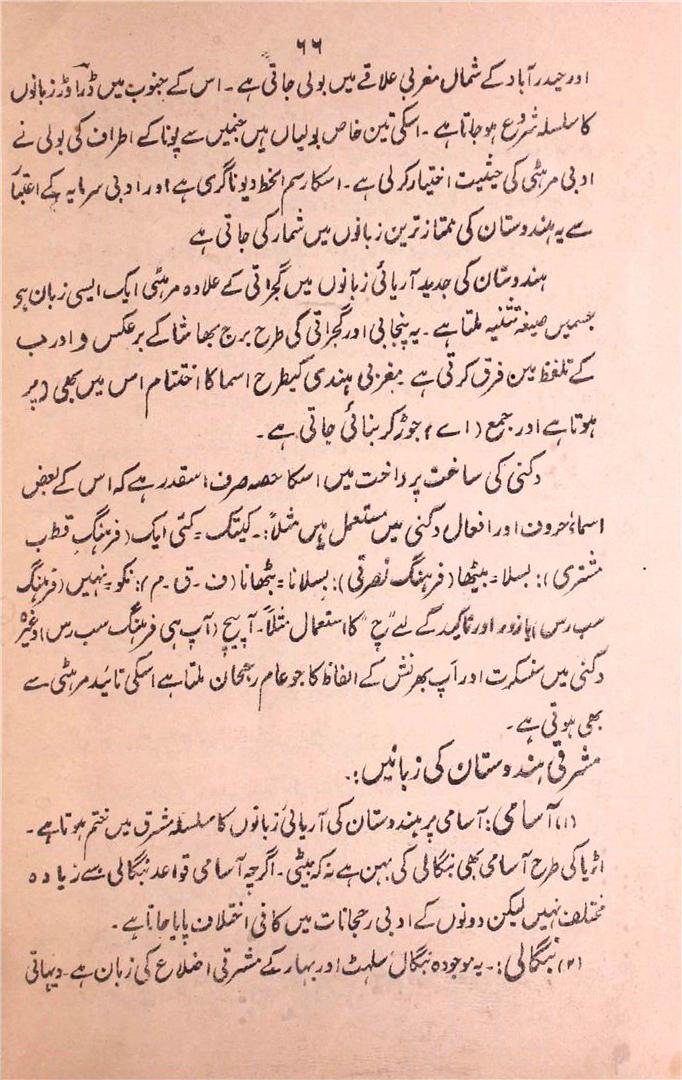 ۶۶
اور حیدرآباد کے شمال مغربی علاقے میں بولی جاتی ہے ۔ اس کے جنوب میں ڈراوڑ زبانوں
کا سلسلہ شروع ہو جاتا ہے ۔ اسکی تین خاص بولیاں ہیں جنمیں سے پونا کے اطراف کی بولی نے
ادبی مرہٹی کی حیثیت اختیار کرلی ہے ۔ اسکا رسم الخط دیوناگری ہے اور ادبی سرمایہ کے اعتبار
سے یہ ہندوستان کی ممتاز ترین زبانوں میں شمار کی جاتی ہے
ہندوستان کی جدید آریائی زبانوں میں گجراتی کے علاوہ مرہٹی ایک ایسی زبان ہے
جسمیں صیغہ تثنیہ ملتا ہے ۔ یہ پنجابی اور گجراتی کی طرح برج بھاشا کے برعکس و اور ب
کے تلفظ میں فرق کرتی ہے مغربی ہندی کیطرح اسما کا اختتام اس میں بھی
ہوتا ہے اور جمع (اے) جوڑ کر بنائی جاتی ہے ۔
دکنی کی ساخت پرداخت میں اسکا حصہ صرف اسقدر ہے کہ اس کے بعض
اسماء حروف اور افعال دکنی میں مستعمل ہیں مثلاً :۔ کیتک = کتی ایک (فرہنگ قطب
مشتری): بسلا = بیٹھا (فرہنگ نصرتی): بسلانا = بٹھانا (ف ۔ ق ۔ م): نکو = نہیں (فرہنگ
سب رس) یا زور اور تاکید کے لیے "چ" کا استعمال مثلاً ۔ آپیچ (آپ ہی فرہنگ سب رس) وغیرہ
دکنی میں سنسکرت اور اَپ بھرنش کے الفاظ کا جو عام رجحان ملتا ہے اسکی تائید مرہٹی سے
بھی ہوتی ہے ۔
مشرقی ہندوستان کی زبانیں :۔
(۱) آسامی : آسامی پر ہندوستان کی آریائی زبانوں کا سلسلہ مشرق میں ختم ہوتا ہے ۔
اڑیا کی طرح آسامی بھی بنگالی کی بہن ہے نہ کہ بیٹی ۔ اگرچہ آسامی قواعد بنگالی سے زیادہ
مختلف نہیں لیکن دونوں کے ادبی رجحانات میں کافی اختلاف پایا جاتا ہے ۔
(۲) بنگالی :۔ یہ موجودہ بنگال سلہٹ اور بہار کے مشرقی اضلاع کی زبان ہے ۔ دیہاتی